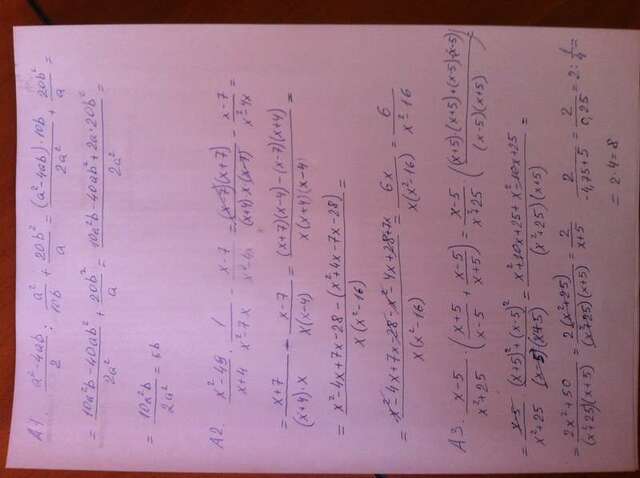 A1 (a²-4ab)/2 : a²/10b + 20b²/a = (a²-4ab)·10b/2a² + 20b²/a =
= (10a²b-40ab²)/2a² + 20b²/a = (10a²b-40ab²+2a·20b²)/2a² =
= 10a²b/2a² = 5b
A2. (x²-49)/(x+4) · 1/(x²-7x) - (x-7)/(x²-4x) = (x-7)(x+7)/(x+4)·x(x-7) - (x-7)/(x²-4x) =
= (x+7)/(x+4)·x - (x-7)/x(x-4) = ((x+7)(x-4)-(x-7)(x+4))/x(x+4)(x-4) =
= (x²-4x+7x-28-(x²+4x-7x-28))/x(x²-16) =
= (x²-4x+7x-28-x²-4x+28+7x)/x(x²-16) = 6x/x(x²-16) = 6/(x²-16)
A3. (x-5)/(x²+25) · ((x+5)/(x-5) + (x-5)/(x+5)) = (x-5)/(x²+25) · ((x+5)·(x+5)+(x-5)·(x-5))/(x-5)(x+5)
= (x-5)/(x²+25) · ((x+5)²+(x-5)²)/(x-5)(x+5) = (x²+10x+25+x²-10x+25)/(x²+25)(x+5) =
= (2x²+50)/(x²+25)(x+5) = 2(x²+25)/(x²+25)(x+5) = 2/(x+5) 2/(-4,75+5) = 2/0,25 = 2 : 1/4 =
= 2·4 = 8